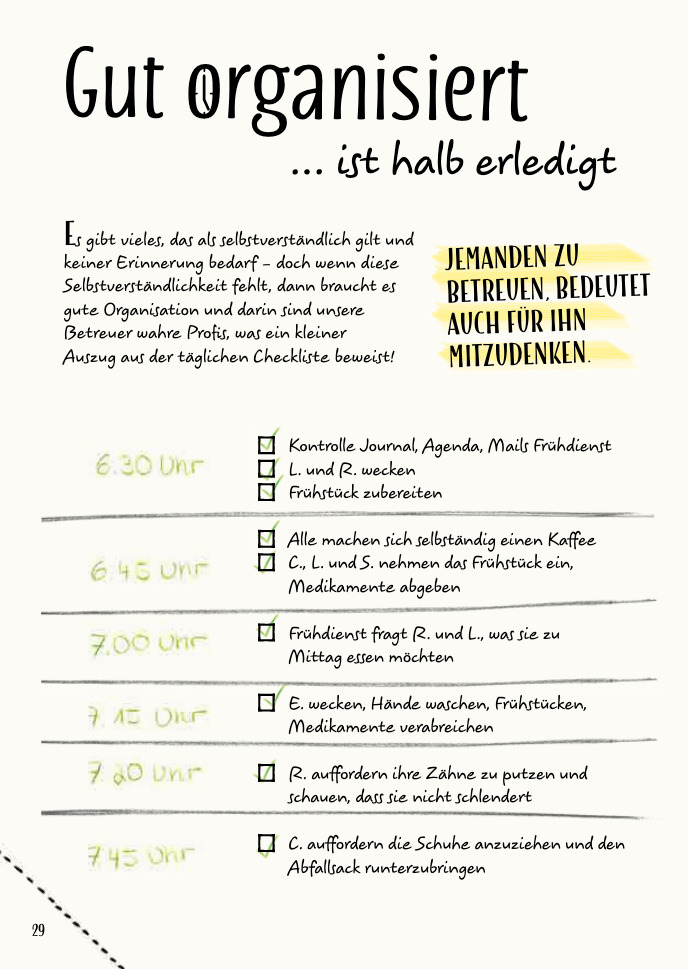 Gut organisiert
... ist halb erledigt
Es gibt vieles, das als selbstverständlich gilt und
keiner Erinnerung bedarf – doch wenn diese
Selbstverständlichkeit fehlt, dann braucht es
gute Organisation und darin sind unsere
Betreuer wahre Profis, was ein kleiner
Auszug aus der täglichen Checkliste beweist!
JEMANDEN ZU
BETREUEN, BEDEUTET
AUCH FÜR IHN
MITZUDENKEN.
6.30 Uhr
Kontrolle Journal, Agenda, Mails Frühdienst
L. und R. wecken
Frühstück zubereiten
6.45 Uhr
Alle machen sich selbständig einen Kaffee
C., L. und S. nehmen das Frühstück ein,
Medikamente abgeben
7.00 Uhr
Frühdienst fragt R. und L., was sie zu
Mittag essen möchten
7.15 Uhr
E. wecken, Hände waschen, Frühstücken,
Medikamente verabreichen
7.20 Uhr
R. auffordern ihre Zähne zu putzen und
schauen, dass sie nicht schlendert
7.45 Uhr
C. auffordern die Schuhe anzuziehen und den
Abfallsack runterzubringen
29